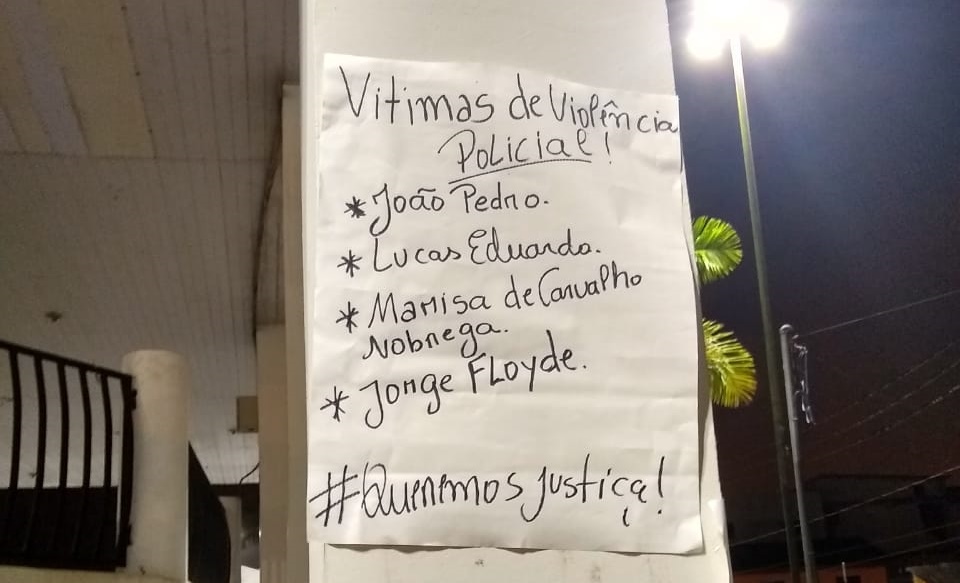 Vitimas de Violência
Policial!
* João Pedro.
* Lucas Eduardo.
* Marisa de Carvalho
Nobrega.
* Jorge FLoyde.
#Queremos justiça!